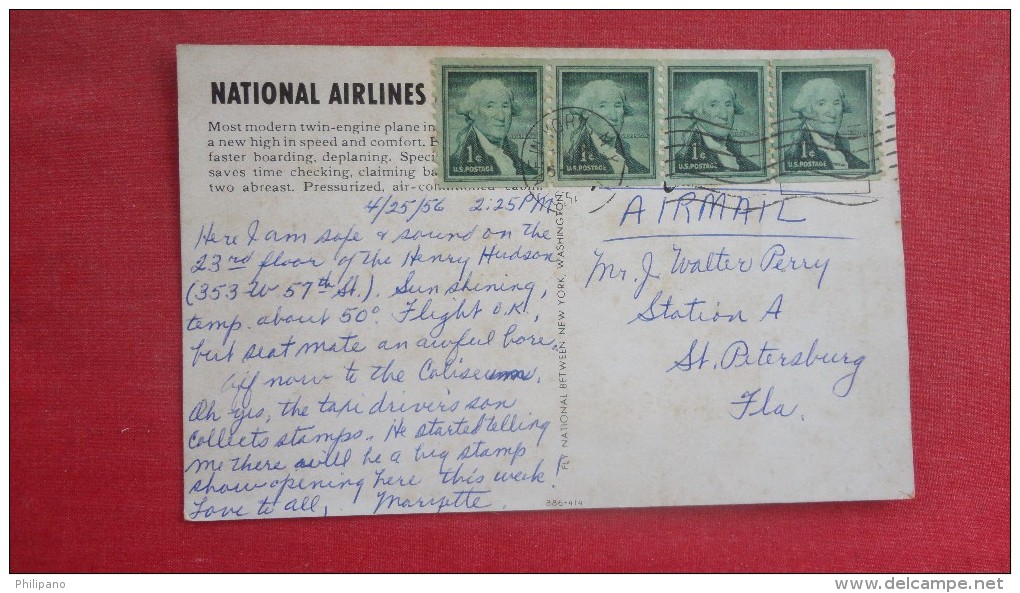 NATIONAL AIRLINES
Most modern twin-engine plane in
a new high in speed and comfort.
faster boarding, deplaning. Speci
saves time checking, claiming ba
two abreast. Pressurized, air-conditioned cabin.
4/25/56 2:25 PM
Here I am safe & sound on the
23rd floor of the Henry Hudson
(353 W 57th St.). Sun shining,
temp. about 50°. Flight O.K.,
but seat mate an awful bore.
Off now to the Coliseum.
Oh yes, the taxi driver's son
collects stamps. He started telling
me there will be a big stamp
show opening here this week!
Love to all,
FLY NATIONAL BETWEEN NEW YORK, WASHINGTON,
386-414
1¢
U.S. POSTAGE
1¢
U.S. POSTAGE
1¢
U.S. POSTAGE
1¢
U.S. POSTAGE
AIRMAIL
Mr. J. Walter Perry
Station A
St. Petersburg
Fla.
Philipano
www.delcampe.net